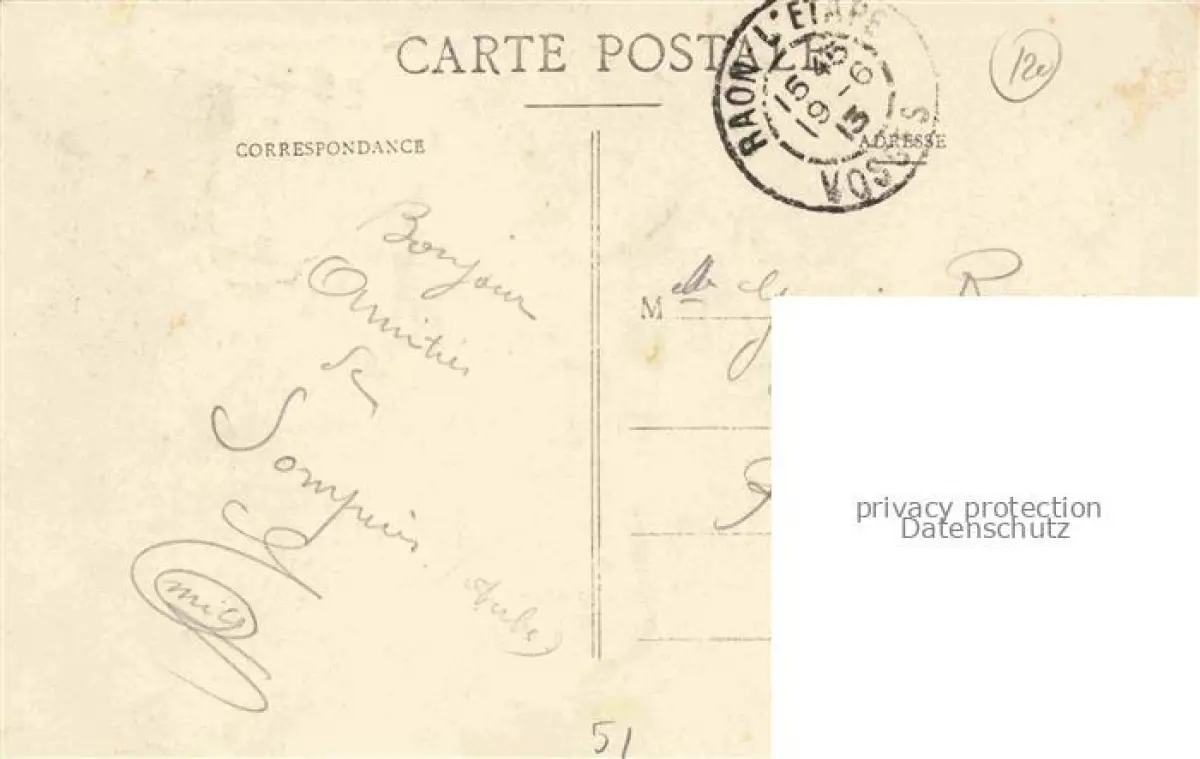 CARTE POSTALE
RAON L'ETAPE
15 45
19 - 6
13
VOSGES
12e
CORRESPONDANCE
ADRESSE
Bonjour
Amitiés
de
Sompuis
(Aube)
M elle
privacy protection
Datenschutz
51